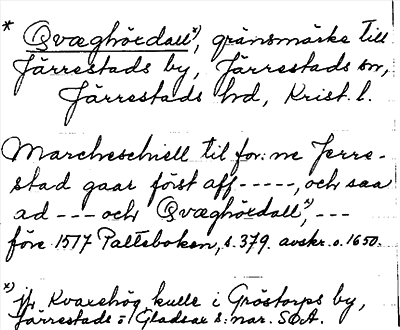 * Qvæghöedall*), gränsmärke till
Järrestads by, Järrestads sn,
Järrestads hd, Krist. l.
Marcheschiell til for:ne Jerre-
stad gaar först aff-----, och saa
ad --- och Qvæghöedall*), ---
före 1517 Palteboken, s. 379. avskr. o. 1650.
*) jfr Kvarehög kulle i Gröstorps by,
Järrestads o Gladsax s:nar. SOA.